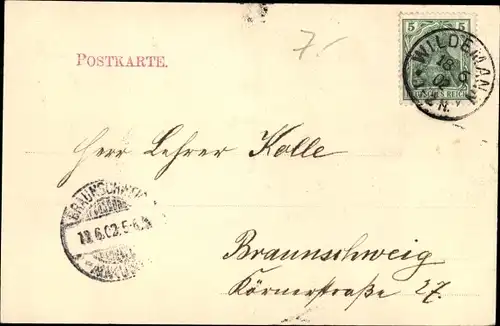 7.-
5
POSTKARTE.
WILDEMANN
18 6
02
N.
DEUTSCHES REICH
Herr Lehrer Kolle
BRAUNSCHWEIG
18.6.02.5-6.N
Braunschweig
Körnerstraße 27.